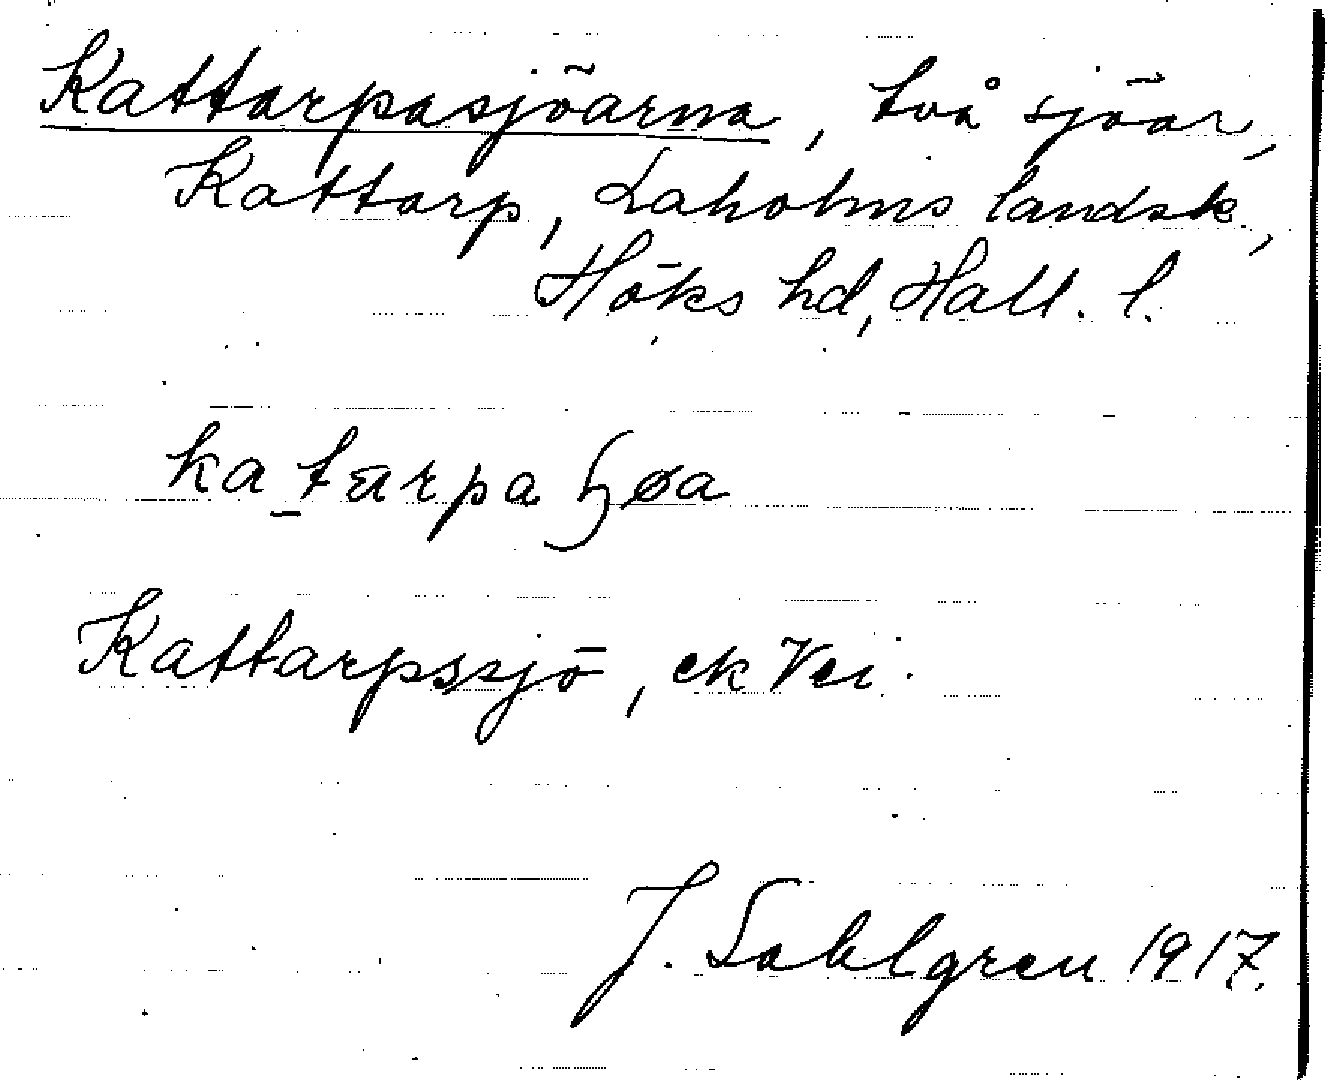 Kattarpasjöarna, två sjöar,
Kattarp, Laholms landsk,
Höks hd, Hall. l.
Kattarpssjö, ek Vei.
J. Sahlgren 1917.